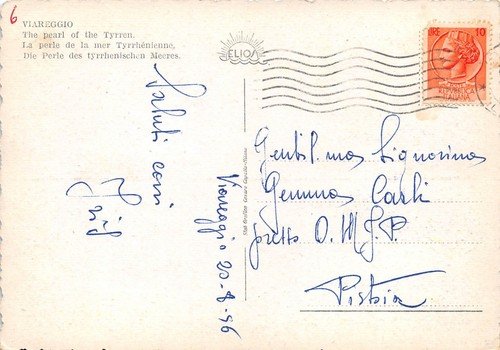 6
VIAREGGIO
The pearl of the Tyrren.
La perle de la mer Tyrrhénienne,
Die Perle des tyrrhenischen Meeres.
ELIOS
LIRE 10
REPVBBLICA
ITALIANA
Saluti cari
Viareggio 20-8-56
Gentil.ma Signorina
Gemma Carli
presso O.M.J.P.
Pistoia